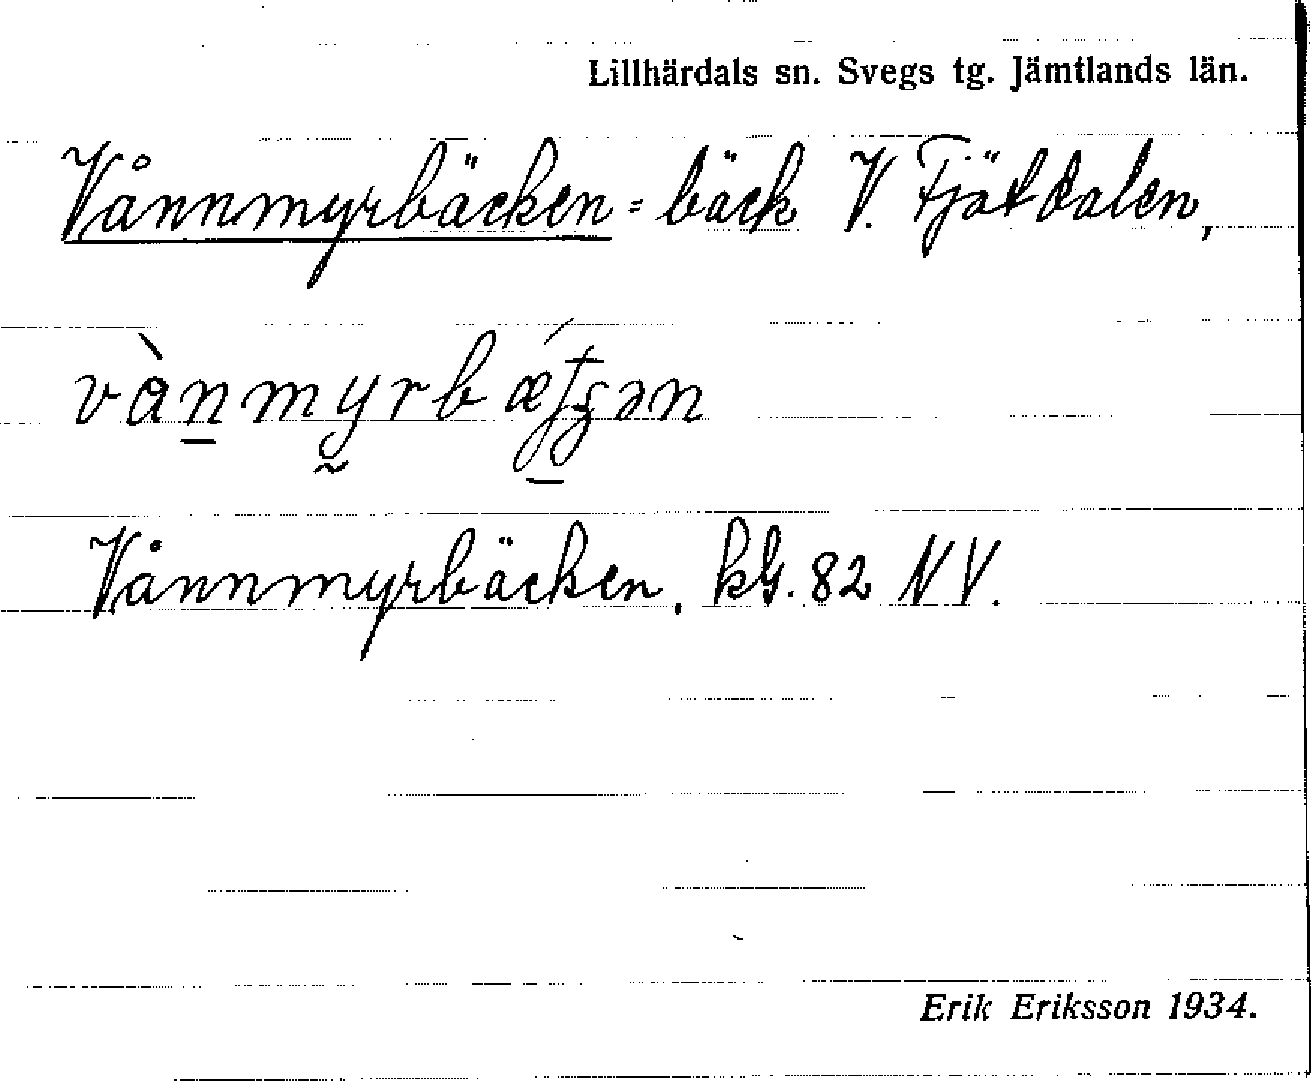 Lillhärdals sn. Svegs tg. Jämtlands län.
Vånnmyrbäcken = bäck V. Fjätdalen,
Vånnmyrbäcken, kbl. 82 NV.
Erik Eriksson 1934.